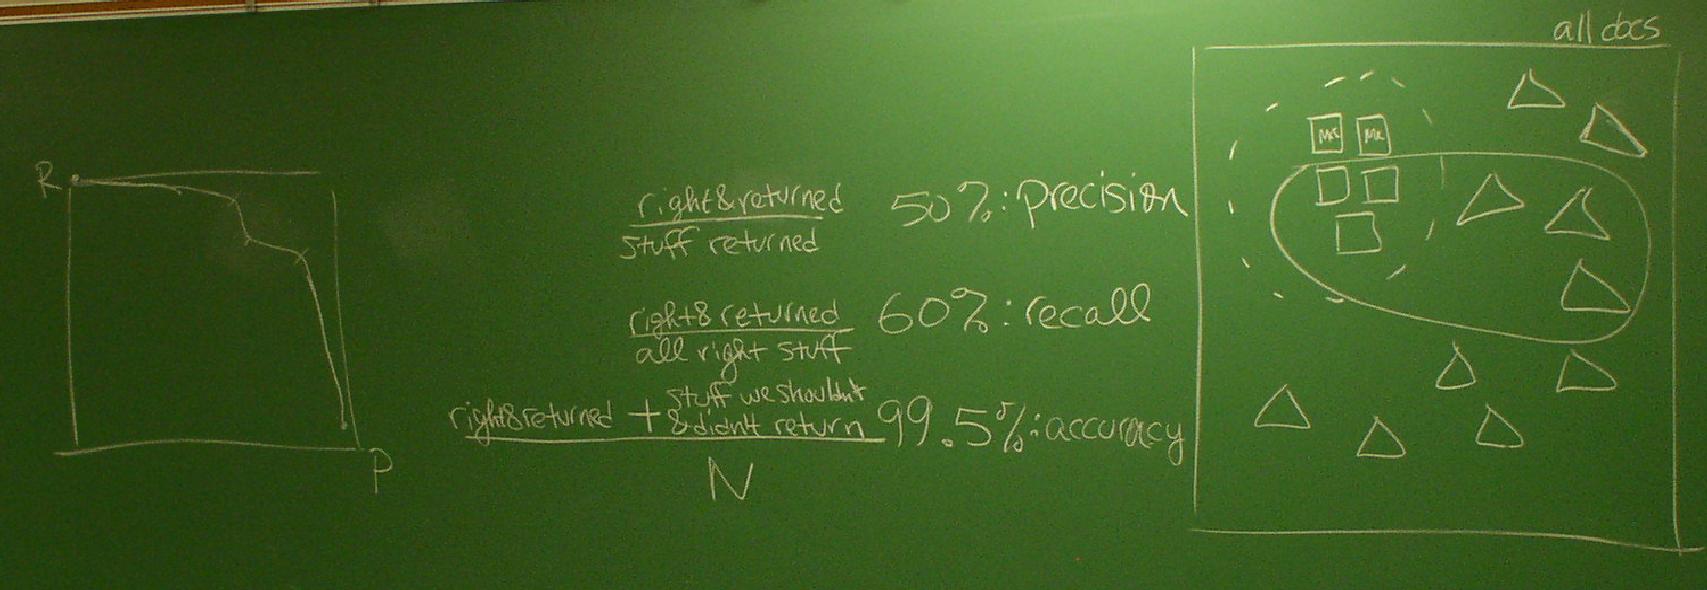 R
P
right&returned
stuff returned
50%: precision
right& returned
all right stuff
60%: recall
right&returned + stuff we shouldn't
& didn't return
N
99.5%: accuracy
all docs